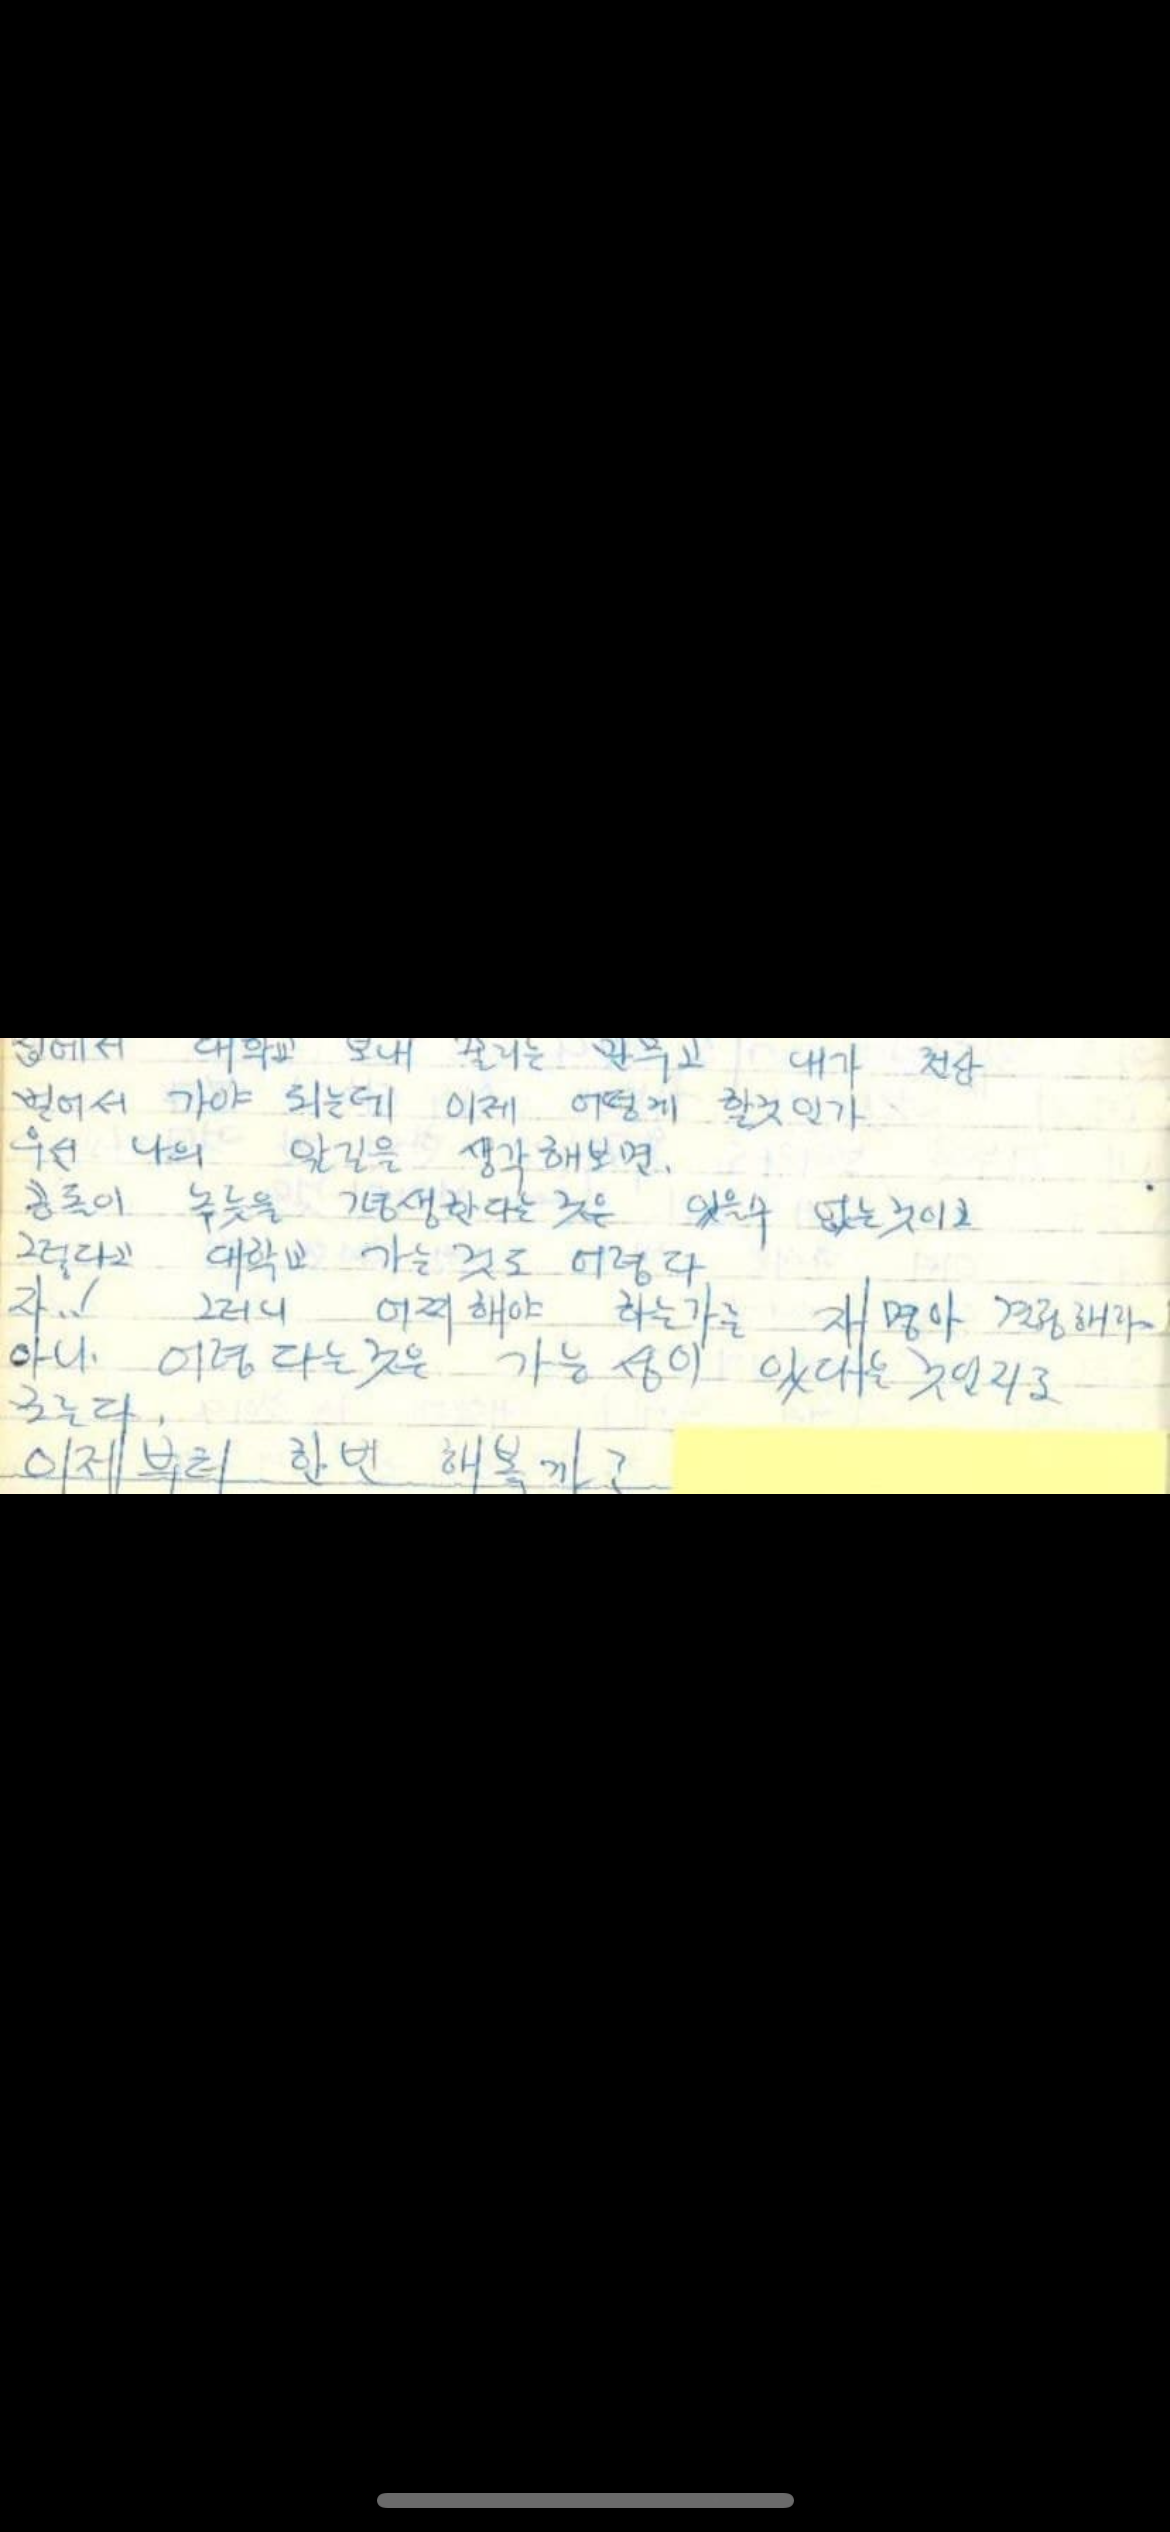 집에서 대학교 보내 꼴리는 만무고 내가 전상
벌어서 가야 되는데 이제 어떻게 할것인가
우선 나의 앞길을 생각해보면.
공돌이 노릇을 평생한다는 것은 있을수 없는 것이고
그렇다고 대학교 가는 것도 어렵다
자..! 그러니 어찌해야 하는가는 재명아 결정해라
아니. 어렵다는 것은 가능성이 있다는 것인지도
모른다.
이제부터 한번 해볼까?